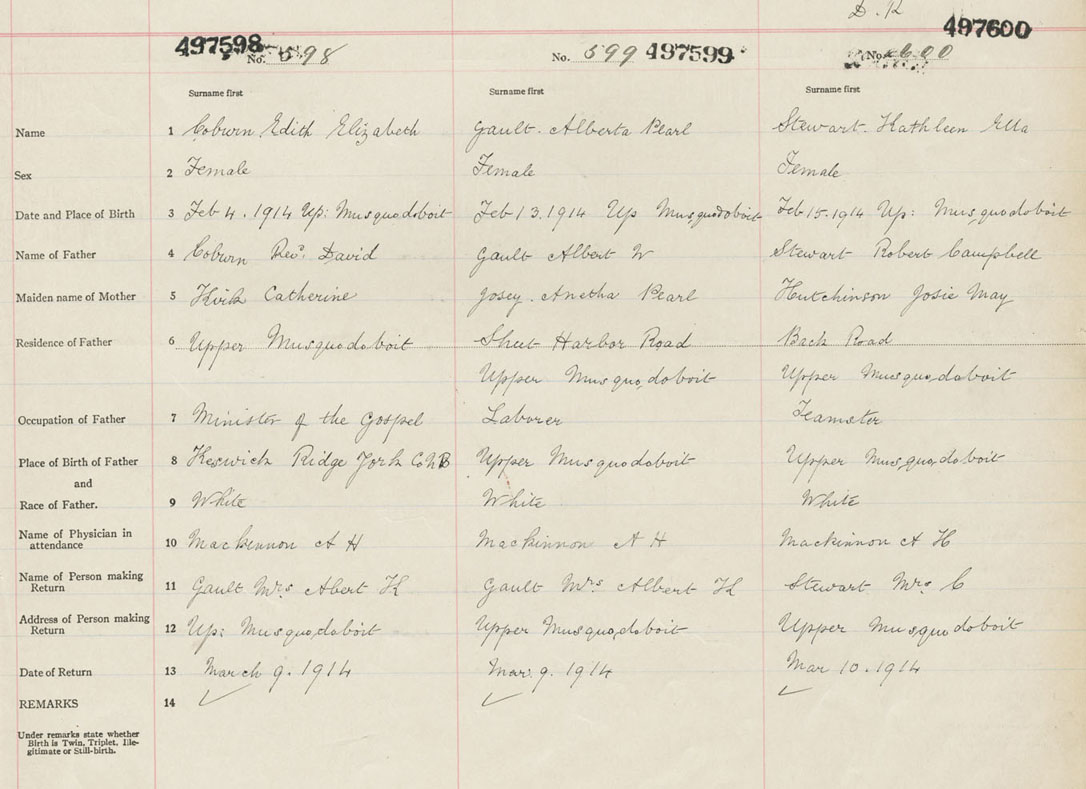 D. R
497598 No. 598 No. 599 497599 497600 No. 600
Surname first Surname first Surname first
Name 1 Coburn Edith Elizabeth Gault. Alberta Pearl Stewart. Kathleen Etta
Sex 2 Female Female Female
Date and Place of Birth 3 Feb 4. 1914 Up: Musquodoboit Feb 13. 1914 Up Musquodoboit Feb 15. 1914 Up: Musquodoboit
Name of Father 4 Coburn Revd. David Gault Albert W Stewart Robert Campbell
Maiden name of Mother 5 Kirk Catherine Josey. Anetha Pearl Hutchinson Josie May
Residence of Father 6 Upper Musquodoboit Sheet Harbor Road Back Road
Upper Musquodoboit Upper Musquodoboit
Occupation of Father 7 Minister of the Gospel Laborer Teamster
Place of Birth of Father 8 Keswick Ridge York Co NB Upper Musquodoboit Upper Musquodoboit
and
Race of Father. 9 White White White
Name of Physician in
attendance 10 Mackinnon A H Mackinnon A H Mackinnon A H
Name of Person making
Return 11 Gault Mrs Abert K Gault Mrs. Albert K Stewart Mrs C
Address of Person making
Return 12 Up: Musquodoboit Upper Musquodoboit Upper Musquodoboit
Date of Return 13 March 9. 1914 Mar. 9. 1914 Mar 10. 1914
REMARKS 14
Under remarks state whether
Birth is Twin, Triplet, Ille-
gitimate or Still-birth.